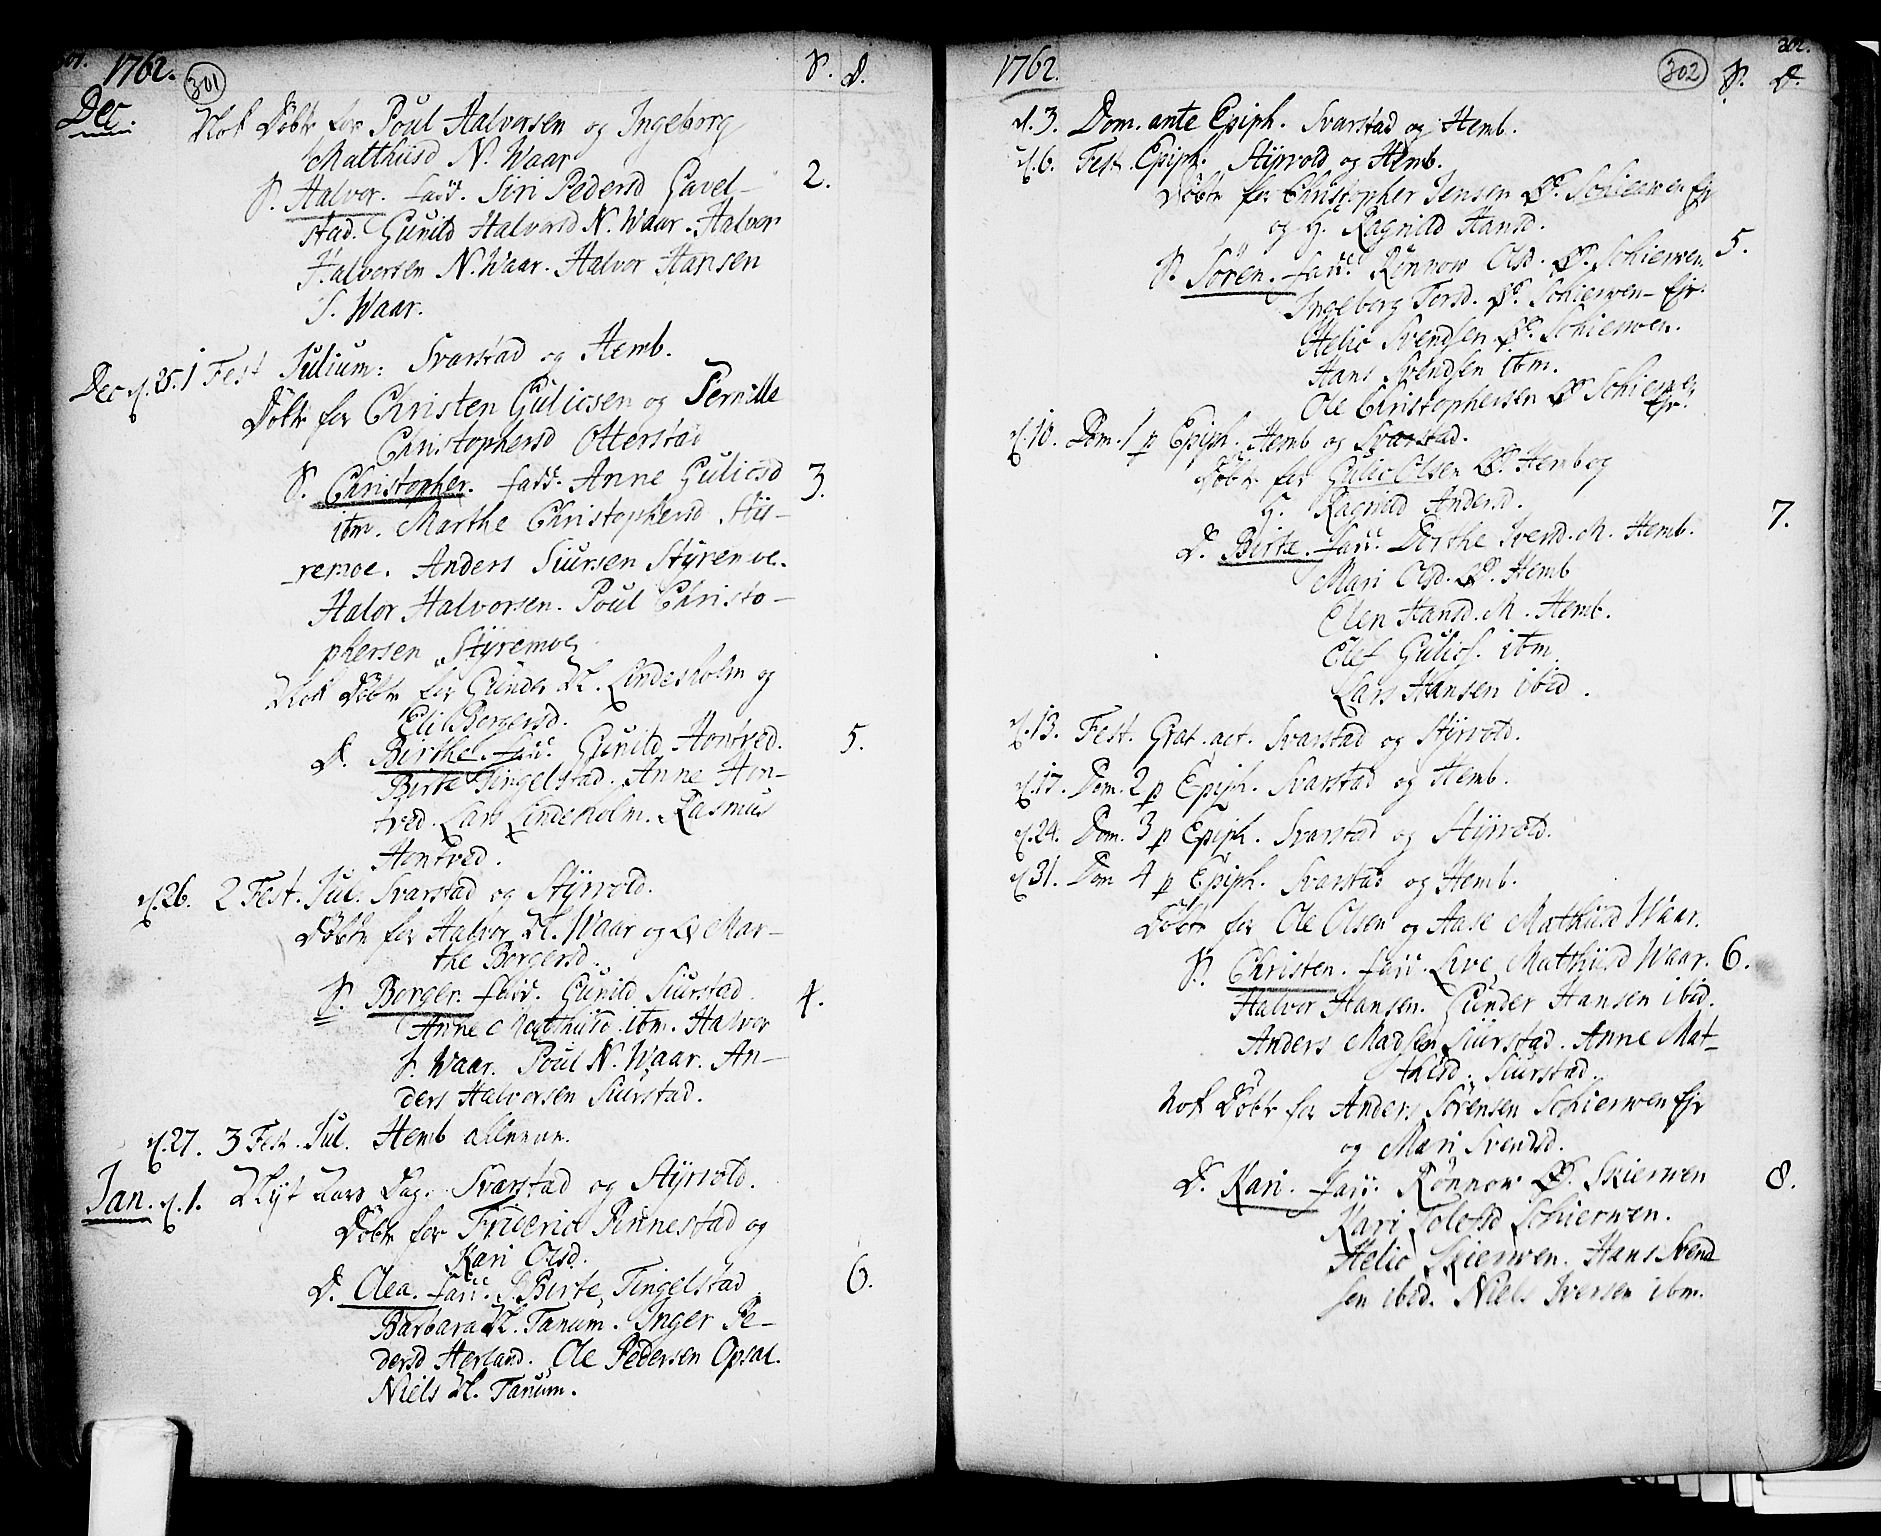 301.
1762.
301
S. D.
Dec.
Nok Döbt for Poul Halversen og Ingeborg
Matthiisd N. Waar
S. Halvor. fadd. Siri Pedersd Gavel- 2.
stad. Gunild Halvorsd N. Waar. Halvor
Halversen N. Waar. Halvor Hansen
S. Waar.
Dec d. 25. 1 Fest Julium: Svarstad og Hemb.
Döbt for Christen Gulicsen og Pernille
Christophersd Otterstad
S. Christopher. fadd. Anne Gulicsd 3.
ibm. Marthe Christophersd Sty-
remoe. Anders Siursen Styremoe.
Halvor Halvorsen. Poul Christo-
phersen Styremoe
Nok Döbt for Gunder N. Lindesholm og
Eli Borgersd.
D. Birthe. fadd. Gunild Hontved. 5.
Birte Tingelstad. Anne Hon-
tved. Lars Lindeholm. Rasmus
Hontved.
d. 26. 2 Fest. Jul. Svarstad og Styrvold.
Döbt for Halvor N. Waar og Mar-
the Borgersd.
S. Borger. fadd. Gunild Siurstad 4.
Anne Matthiisd ibm. Halvor
S. Waar. Poul N. Waar. An-
ders Halvorsen Siurstad.
d. 27. 3 Fest. Jul. Hemb allenne.
Jan. d. 1. Nyt Aars Dag. Svarstad og Styrvold.
Döbt for Friderid Rinnestad og
Kari Olsd.
D. Olea. fadd. Birte Tingelstad 6.
Barbara N. Tanum. Inger Pe-
dersd Herland. Ole Pedersen Opsal.
Niels N. Tanum.
1762.
302
302.
S. D.
d. 3. Dom. ante Epiph. Svarstad og Hemb.
d. 6. Fest. Epiph. Styrvold og Hemb.
Döbt for Christopher Jensen Ø. Schierwen Ejr
og H. Ragnild Hansd.
S. Sören. fadd. Rönnow Olsd. Ø. Schierwen 5.
Ingeborg Torsd. Ø. Schierwen Ejr.
Helie Svendsen Ø. Schierwen.
Hans Svendsen ibm.
Ole Christophersen Ø Schierwen
Ejr.
d. 10. Dom. 1 p Epiph. Hemb og Svarstad.
Döbt for Gulic Olsen Ø. Hemb og
H. Ragnild Andersd.
D. Birte. fadd. Dorthe Svensd. M. Hemb. 7.
Mari Olsd. Ø. Hemb
Elen Hansd. M. Hemb.
Elef Gulics. ibm
Lars Hansen ibid.
d. 13. Fest. Grat. act. Svarstad og Styrvold.
d. 17. Dom. 2 p Epiph. Svarstad og Hemb.
d. 24. Dom. 3 p Epiph. Svarstad og Styrvold.
d. 31. Dom 4 p Epiph. Svarstad og Hemb.
Döbt for Ole Olsen og Aase Mathiisd Waar.
S. Christen. fadd. Live Matthiisd Waar. 6.
Halvor Hansen. Gunder Hansen ibid.
Anders Madsen Siurstad. Anne Mat-
thisd. Siurstad.
Nok Döbt for Anders Sörensen Schierwen Ejr
og Mari Svendsd.
D. Kari. fadd. Rönnow Ø. Skierwen 8.
Kari Tolefsd Schierwen.
Helie Skierwen. Hans Svend
sen ibid. Niels Iversen ibm.